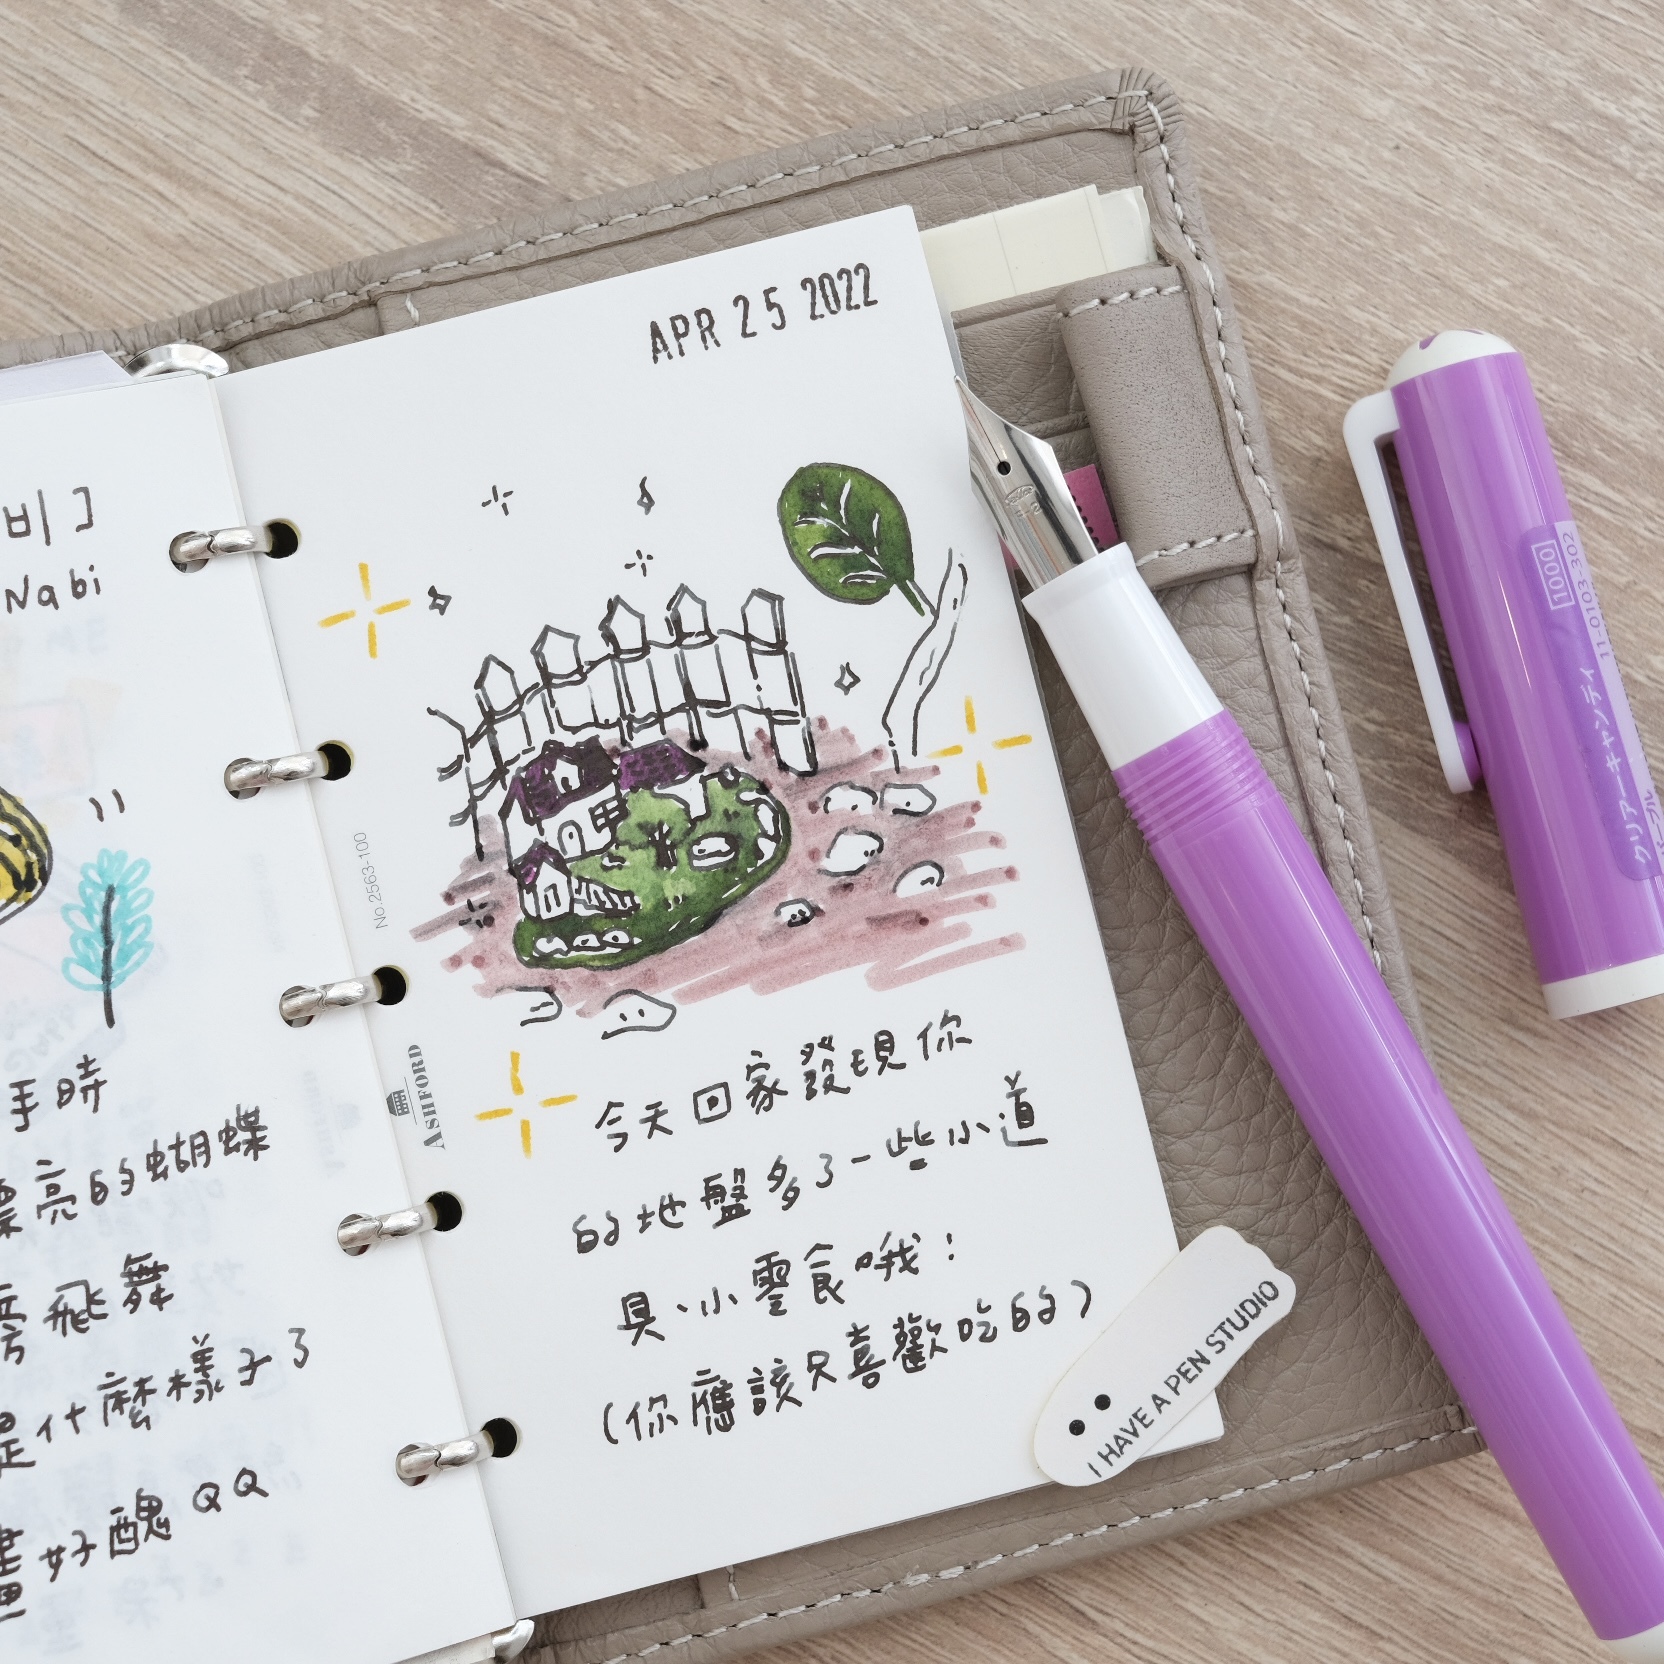 비
Nabi
手時
漂亮的蝴蝶
旁飛舞
是什麼樣子了
畫好醜QQ
No.2563-100
ASHFORD
APR 25 2022
今天回家發現你
的地盤多了一些小道
具、小零食哦！
(你應該只喜歡吃的)
I HAVE A PEN STUDIO
1000
11-0103-302
クリアーキャンディ
パープル